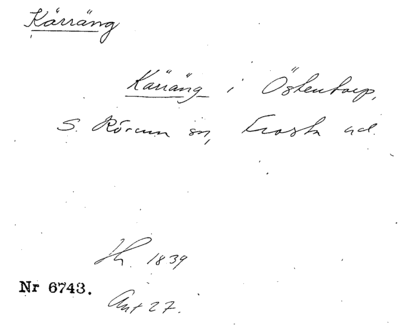 Kärräng
Kärräng i Östentorp,
S. Rörum sn, Frosta hd.
Hr. 1839
Nr 6743.
Ant 27.